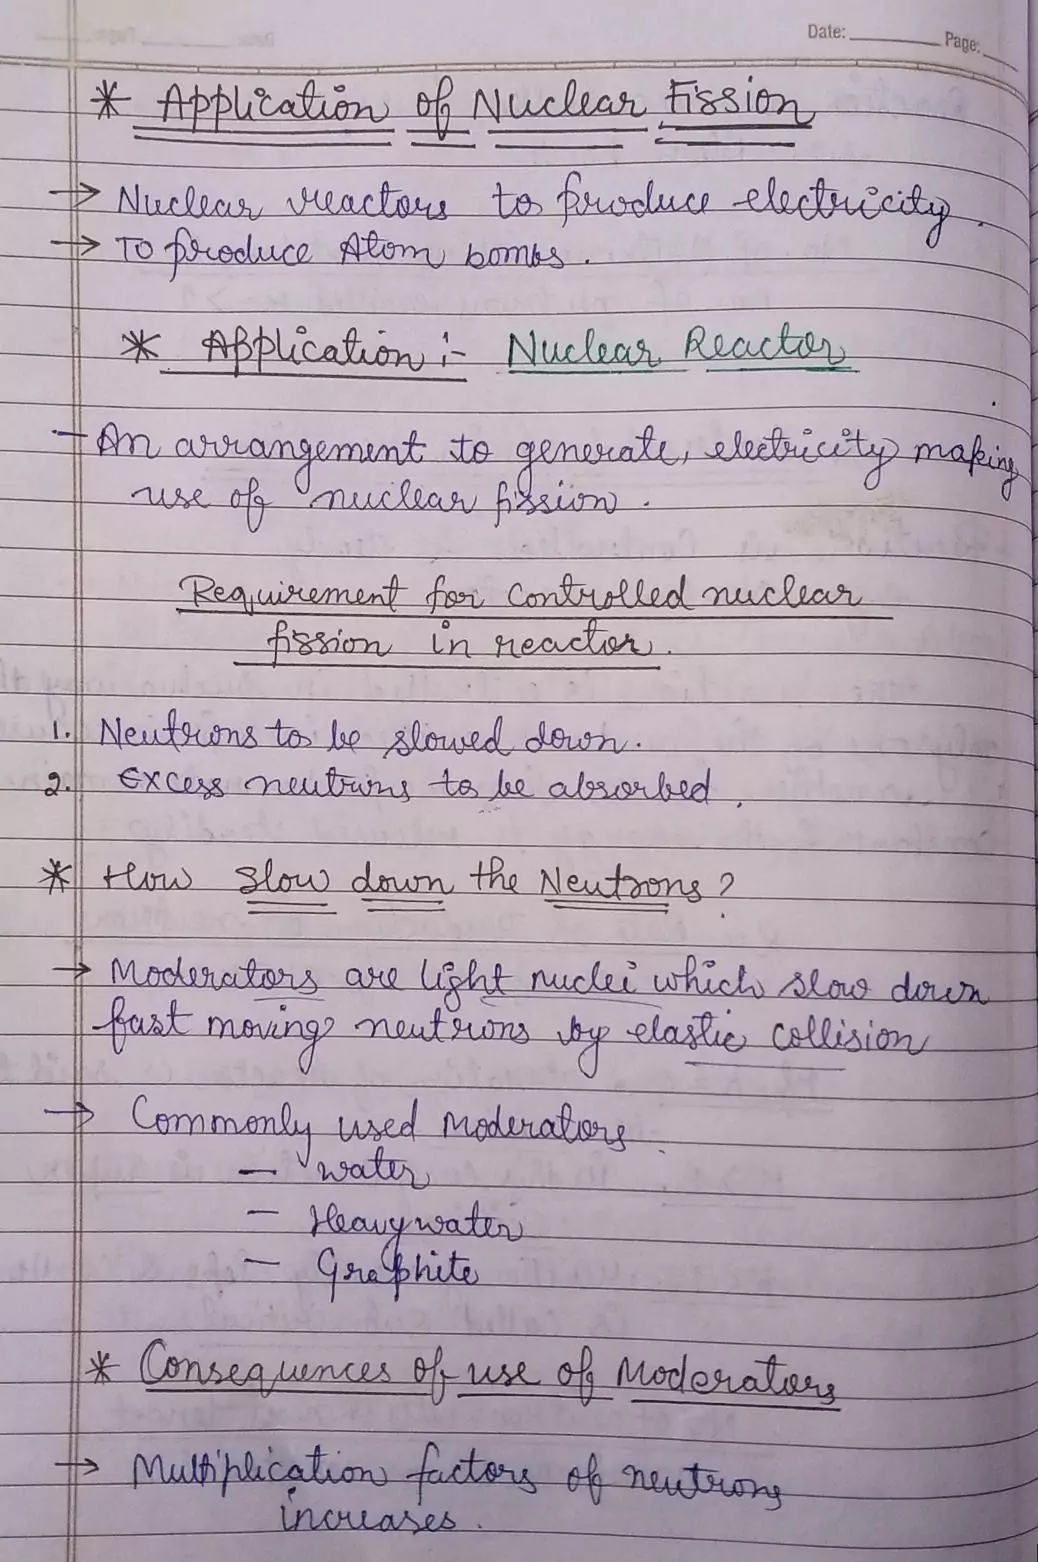 Date: Page:
* Application of Nuclear Fission
→ Nuclear reactors to produce electricity.
→ To produce Atom bombs.
* Application :- Nuclear Reactor
- An arrangement to generate, electricity making
use of nuclear fission.
Requirement for controlled nuclear
fission in reactor.
1. Neutrons to be slowed down.
2. Excess neutrons to be absorbed.
* How slow down the Neutrons?
→ Moderators are light nuclei which slow down
fast moving neutrons by elastic collision
→ Commonly used Moderators.
- water
- Heavy water
- Graphite
* Consequences of use of Moderators
→ Multiplication factors of neutrons
increases.